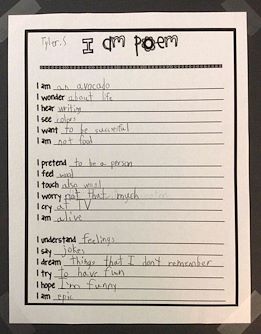 Tyler.S
I am poem
I am an avocado
I wonder about life
I hear writing
I see
I want to be successful
I am not food
I pretend to be a person
I feel wool
I touch also wool
I worry not that much
I cry at TV
I am alive
I understand feelings
I say jokes
I dream things that I don't remember
I try to have fun
I hope I'm funny
I am epic